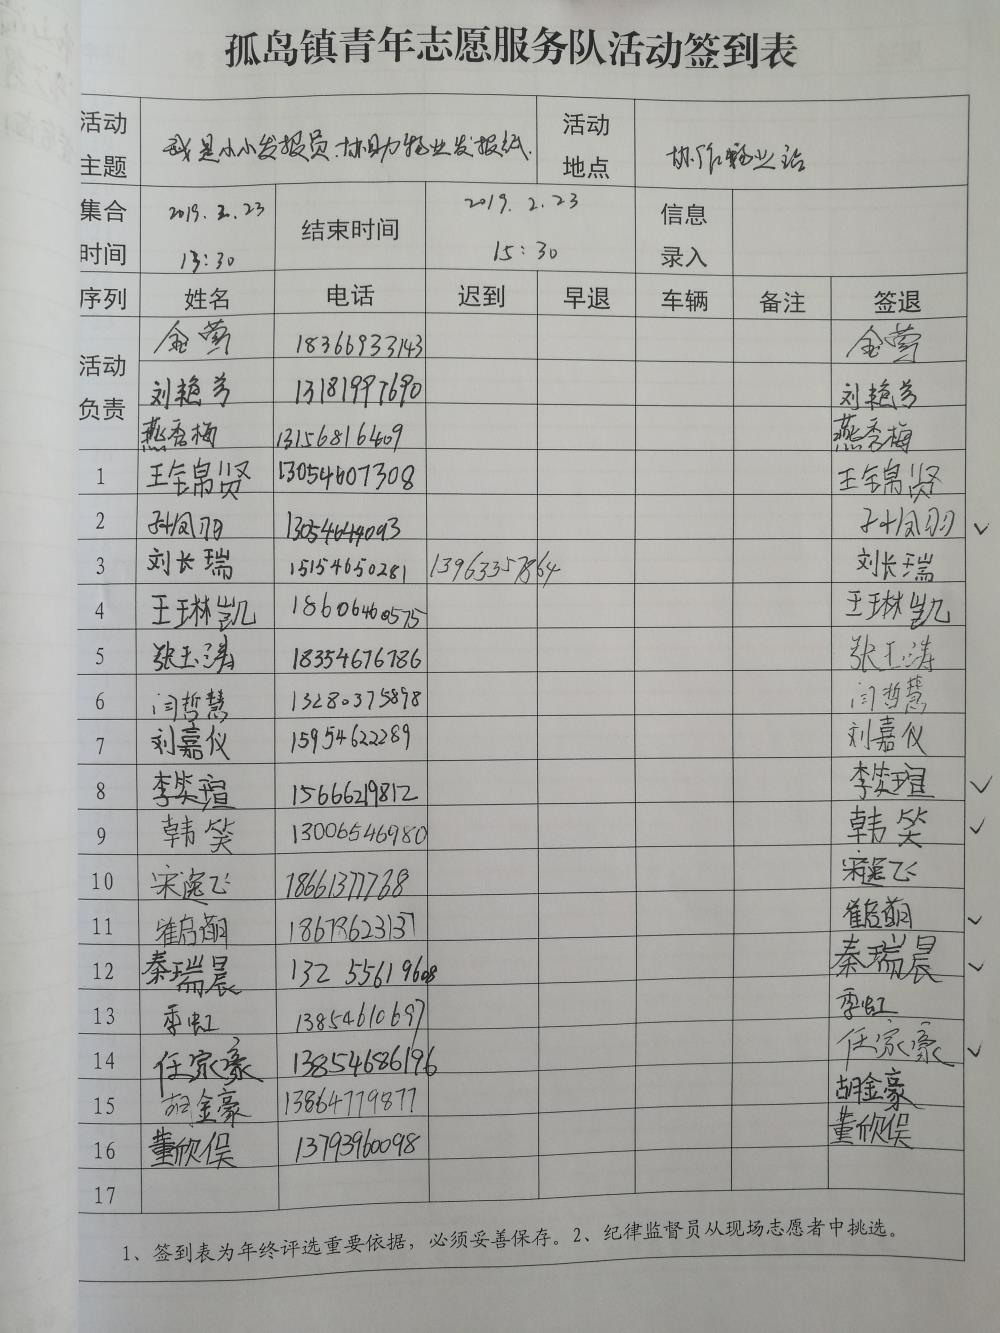 孤岛镇青年志愿服务队活动签到表
活动主题 我是小小发报员.协助物业发报纸. 活动地点 协作物业站
集合时间 2019.2.23 13:30 结束时间 2019.2.23 15:30 信息录入
序列 姓名 电话 迟到 早退 车辆 备注 签退
活动负责 金莺 18366933143 金莺
刘艳芳 13181997690 刘艳芳
燕秀梅 13156816409 燕秀梅
1 王锦贤 13054607308 王锦贤
2 孙凤羽 13054644093 孙凤羽 ✓
3 刘长瑞 15154650281 13963357864 刘长瑞
4 王琳凯 18606460575 王琳凯
5 张玉涛 18354676786 张玉涛
6 闫哲慧 13280375898 闫哲慧
7 刘嘉仪 15954622289 刘嘉仪
8 李笑瑄 15666219812 李笑瑄 ✓
9 韩笑 13006546980 韩笑 ✓
10 宋逸飞 18661377768 宋逸飞
11 崔启萌 崔启萌 ✓
12 秦瑞晨 132 5561 9608 秦瑞晨 ✓
13 季虹 13854610697 季虹
14 任家豪 13854686196 任家豪 ✓
15 胡金豪 13864779877 胡金豪
16 董欣俣 13793960098 董欣俣
17
1、签到表为年终评选重要依据，必须妥善保存。2、纪律监督员从现场志愿者中挑选。